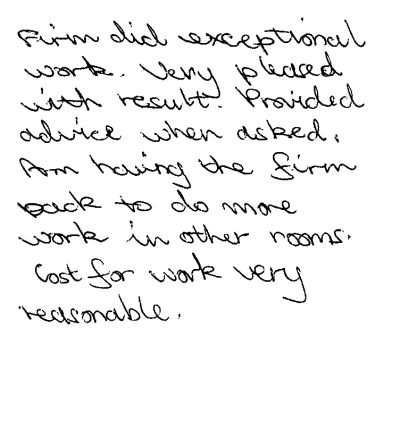 Firm did exceptional
work. Very pleased
with result. Provided
advice when asked.
Am having the firm
back to do more
work in other rooms.
Cost for work very
reasonable.